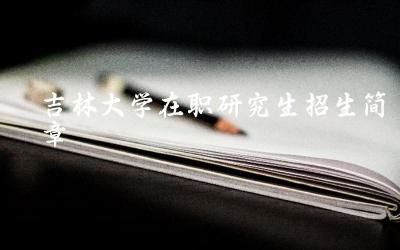 吉林大学在职研究生招生简
章